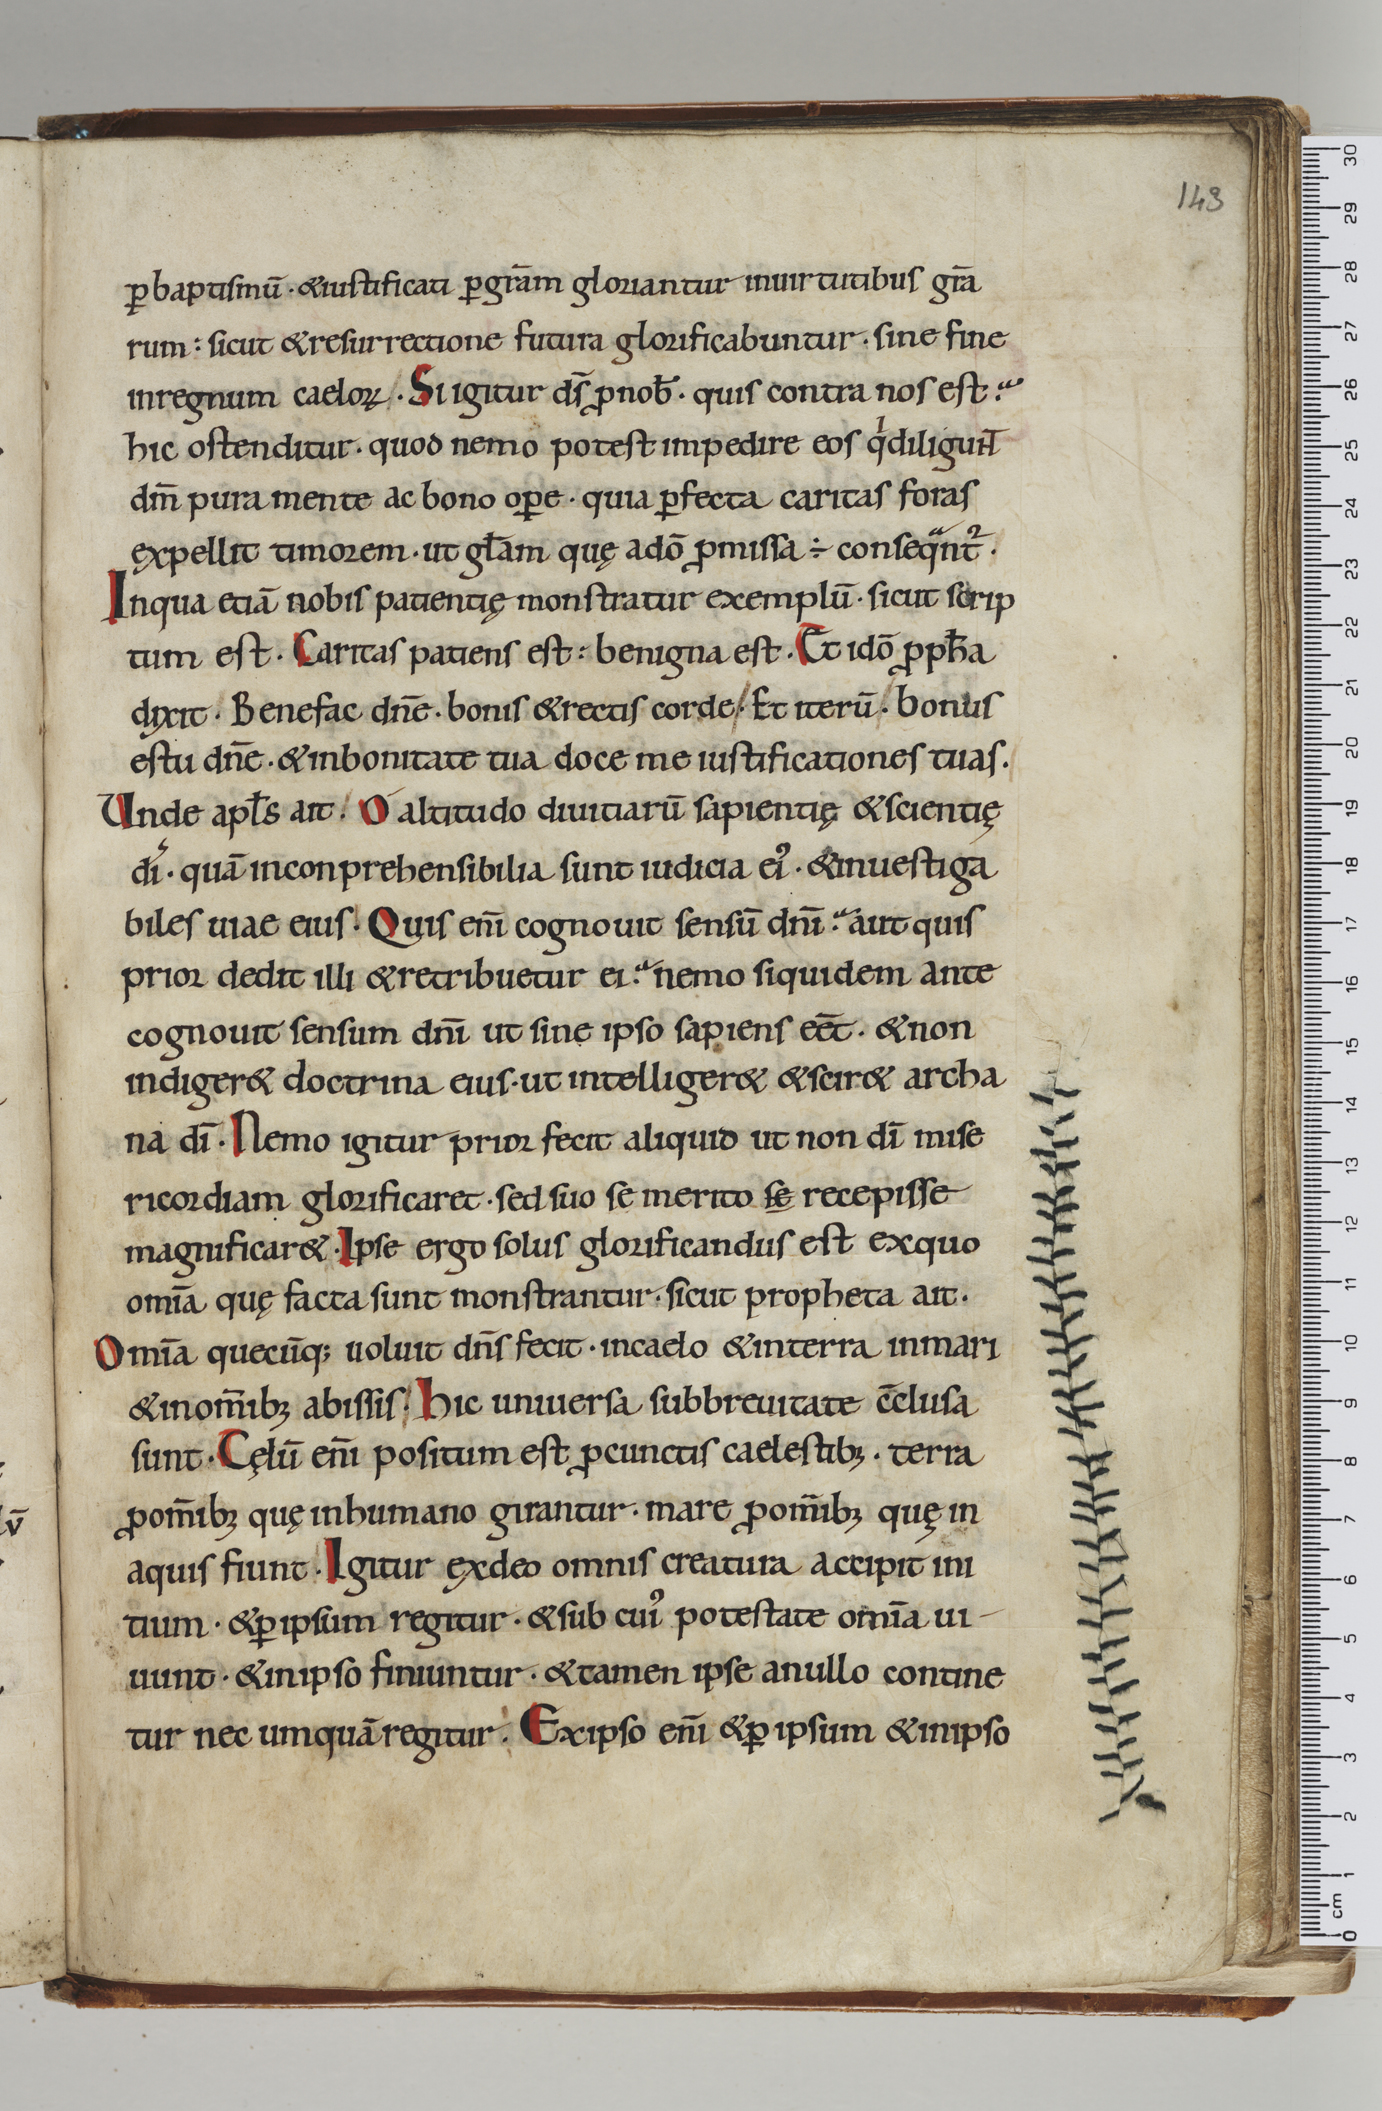 143
ꝑ baptismū · &iustificati ꝑ gr̄am gloriantur inuirtutibus gr̄a
rum : sicut &resurrectione futura glorificabuntur · sine fine
inregnum caeloꝝ · Si igitur ds̄ ꝓnob̄ · quis contra nos est ?
hic ostenditur · quod nemo potest impedire eos qͥ diligunt̄
dm̄ pura mente ac bono oꝑe · quia ꝑfecta caritas foras
expellit timorem · ut gl̄am quę adō ꝓmissa ÷ conseqᷓnt᷑ ·
Inqua etiā nobis patientię monstratur exemplū · sicut scrip
tum est · Caritas patiens est : benigna est · Et idō ꝓph̄a
dixit · Benefac dn̄e · bonis &rectis corde · Et iterū · bonus
estu dn̄e · &inbonitate tua doce me iustificationes tuas ·
Unde apl̄s ait · O altitudo diuitiarū sapientię &scientię
dī · quā inconprehensibilia sunt iudicia eiꝰ · &inuestiga
biles uiae eius · Quis eni̅ cognouit sensū dnī ? aut quis
prior dedit illi &retribuetur ei ? nemo siquidem ante
cognouit sensum dnī ut sine ipso sapiens eēt · &non
indiger& doctrina eius · ut intelliger& &scir& archa
na dī · Nemo igitur prior fecit aliquid ut non dī mise
ricordiam glorificaret · sed suo se merito se recepisse
magnificar& · Ipse ergo solus glorificandus est exquo
omīa quę facta sunt monstrantur · sicut propheta ait ·
Omīa quecūq; uoluit dn̄s fecit · incaelo &interra inmari
&inom̄ibꝫ abissis · hic uniuersa subbreuitate c̄clusa
sunt · Cęlū eni̅ positum est ꝓcunctis caelestibꝫ · terra
ꝓom̄ibꝫ quę inhumano girantur · mare ꝓom̄ibꝫ quę in
aquis fiunt · Igitur exdeo omnis creatura accipit ini
tium · &ꝑ ipsum regitur · &sub cuiꝰ potestate omīa ui
uunt · &inipso finiuntur · &tamen ipse anullo contine
tur nec umquā regitur · Exipso eni̅ &ꝑ ipsum &inipso